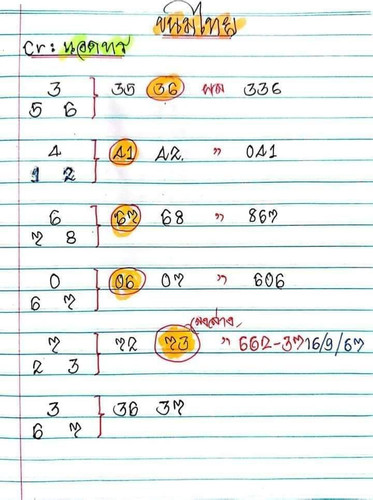 ขนมไทย
Cr:
3 } 35 36 336
5 6
4 } 41 42 " 041
1 2
6 } 67 68 " 867
7 8
0 } 06 07 " 606
6 7
7 } 72 73 " 662-37 16/9/67
2 3
3 } 36 37
6 7